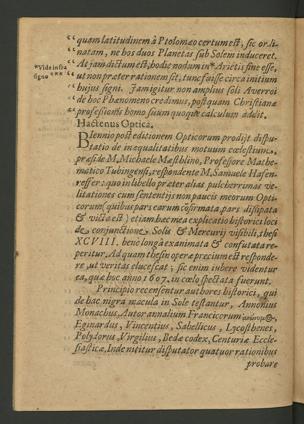 quam latitudinem à Ptolomæo certum est, sic ordi-
natam, ne hos duos Planetas sub Solem induceret.
*Vide infra signo
At jam dictum est, hodie nodum in * Arietis sine esse,
ut non præter rationem sit, tunc fuisse circa initium
hujus signi. Jam igitur non amplius soli Averroi
de hoc Phænomeno credimus, postquam Christianæ
professionis homo suum quoque calculum addit.
Hactenus Optica.
Biennio post editionem Opticorum prodijt dispu-
tatio de inæqualitatibus motuum cœlestium,
præside M. Michaele Mæstlino, Professore Mathe-
matico Tubingensi, respondente M. Samuele Hafen-
reffer: quo in libello præter alias pulcherrimas ve-
litationes cum sententijs non paucis meorum Opti-
corum (quibus pars earum cōfirmata, pars dissipata
& victa est) etiam hæc mea explicatio historici loci
de conjunctione Solis & Mercurij visibili, thesi
XCVIII. bene longâ examinata & confutata re-
peritur. Ad quam thesin operæ precium est responde-
re, ut veritas elucescat; sic enim jubere videntur
ea, quæ hoc anno 1607. in cœlo spectata fuerunt.
Principio recensentur authores historici, qui
de hac nigra macula in Sole testantur, Annonius
Monachus, Autor annalium Francicorum
Eginardus, Vincentius, Sabellicus, Lycosthenes,
Polydorus, Virgilius, Bedæ codex, Centuriæ Eccle-
siasticæ, Inde nititur disputator quatuor rationibus
probare